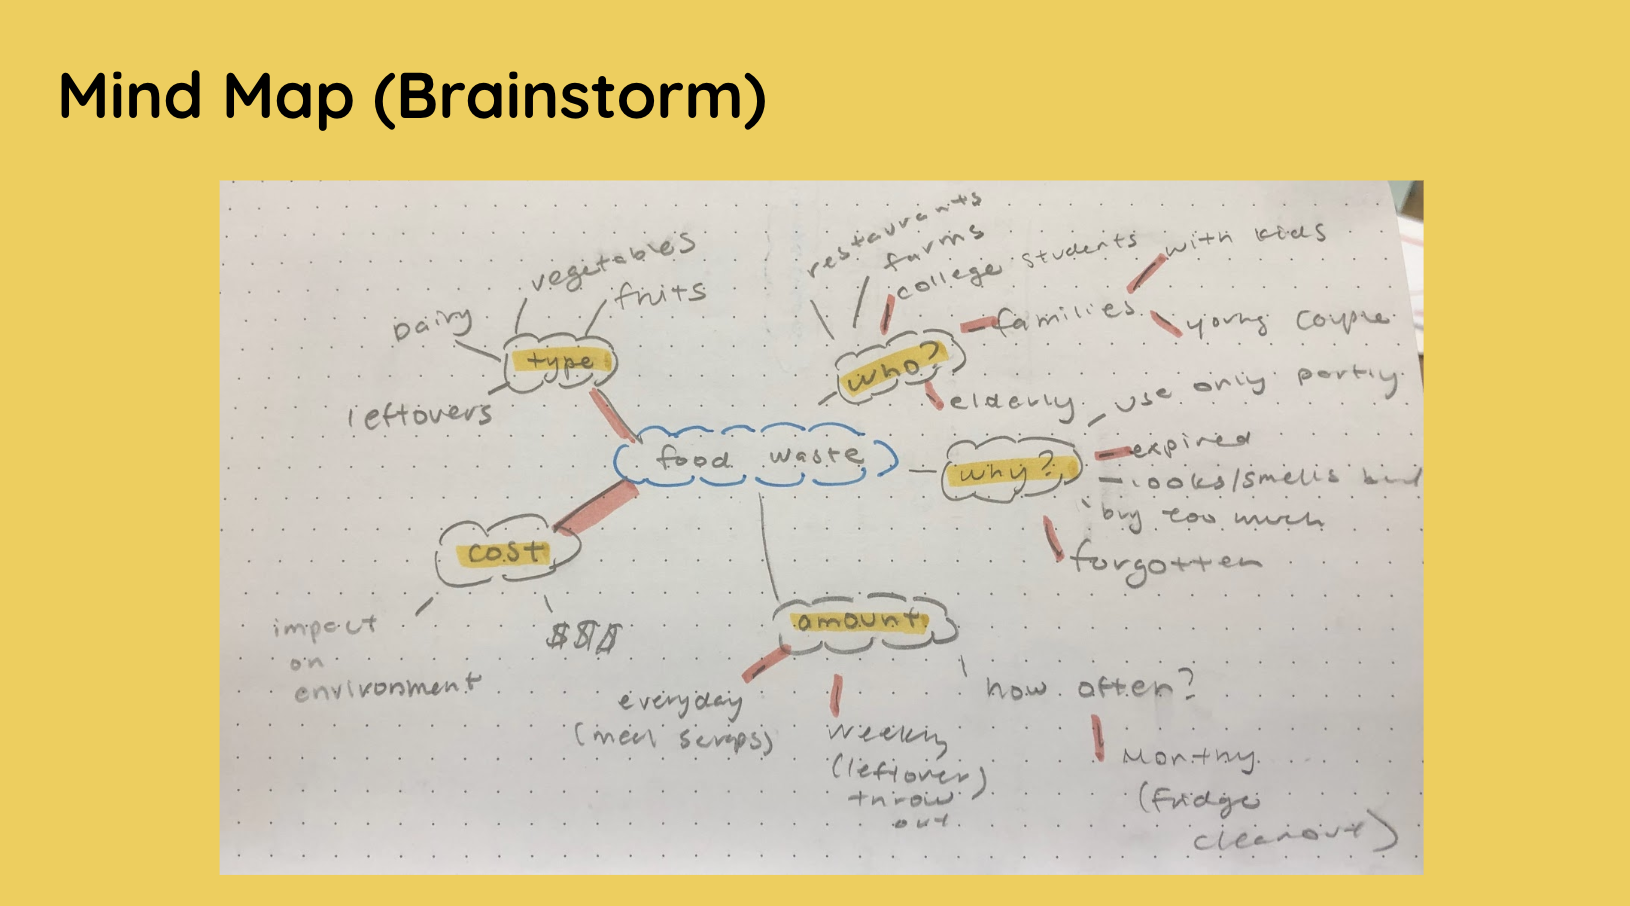 Mind Map (Brainstorm)
vegetables
fruits
Dairy
type
leftovers
restaurants
farms
college students
families
with kids
young couple
who?
elderly
food waste
why?
use only partly
expired
looks/smells bad
buy too much
forgotten
cost
impact
on
environment
$$$
amount
everyday
(meal scraps)
weekly
(leftover)
throw
out
how often?
Monthly
(fridge
cleanout)